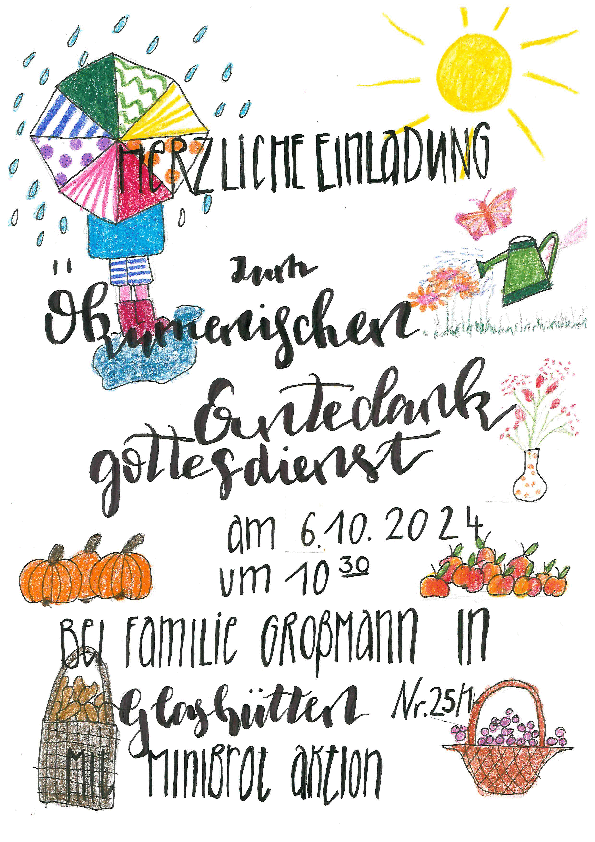 HERZLICHE EINLADUNG
zum
Ökumenischen
Erntedank
gottesdienst
am 6.10.2024
um 10 30
BEI FAMILIE GROßMANN IN
Glashütten Nr. 25/1
MIT MINIBROT AKTION